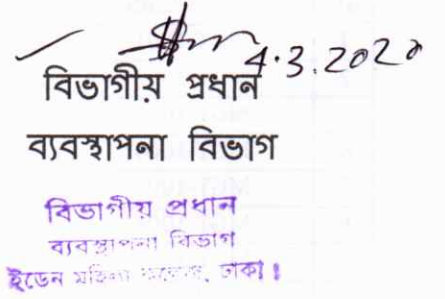 4.3.2020
বিভাগীয় প্রধান
ব্যবস্থাপনা বিভাগ
বিভাগীয় প্রধান
ব্যবস্থাপনা বিভাগ
ইডেন মহিলা কলেজ, ঢাকা।